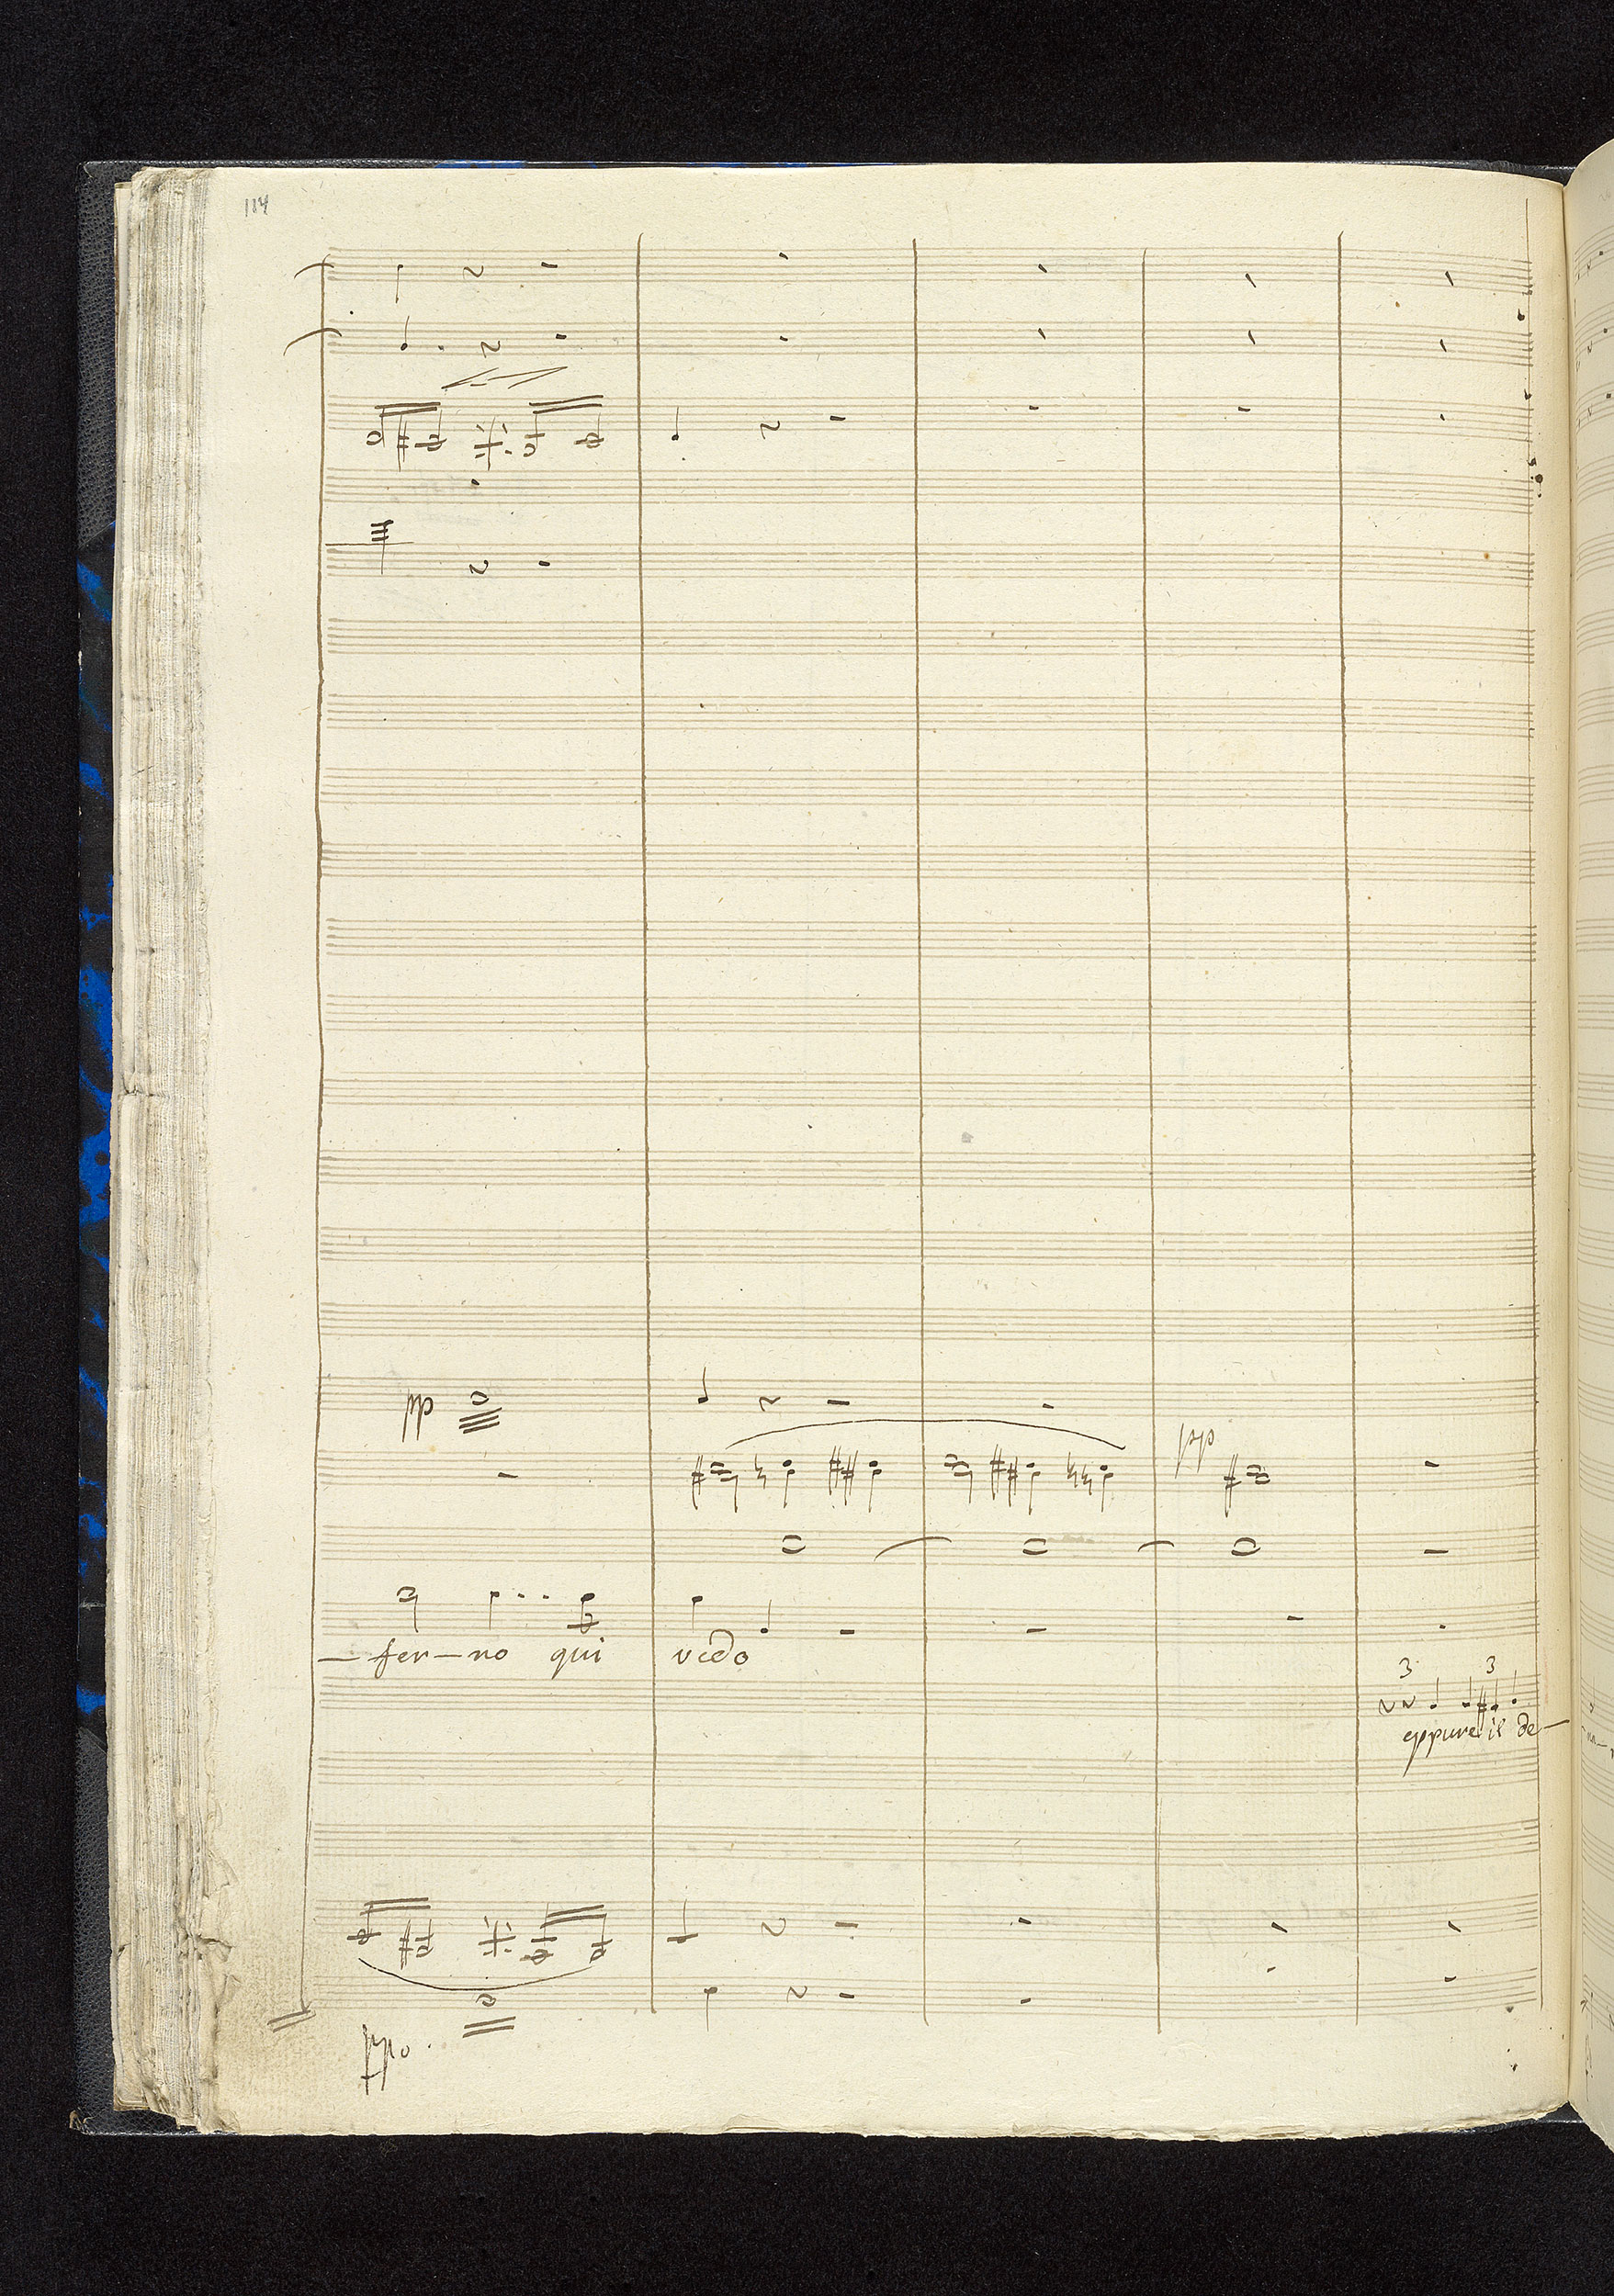 114
pp
pp
– fer – no qui vedo
3 3
eppure il de –
ppo.